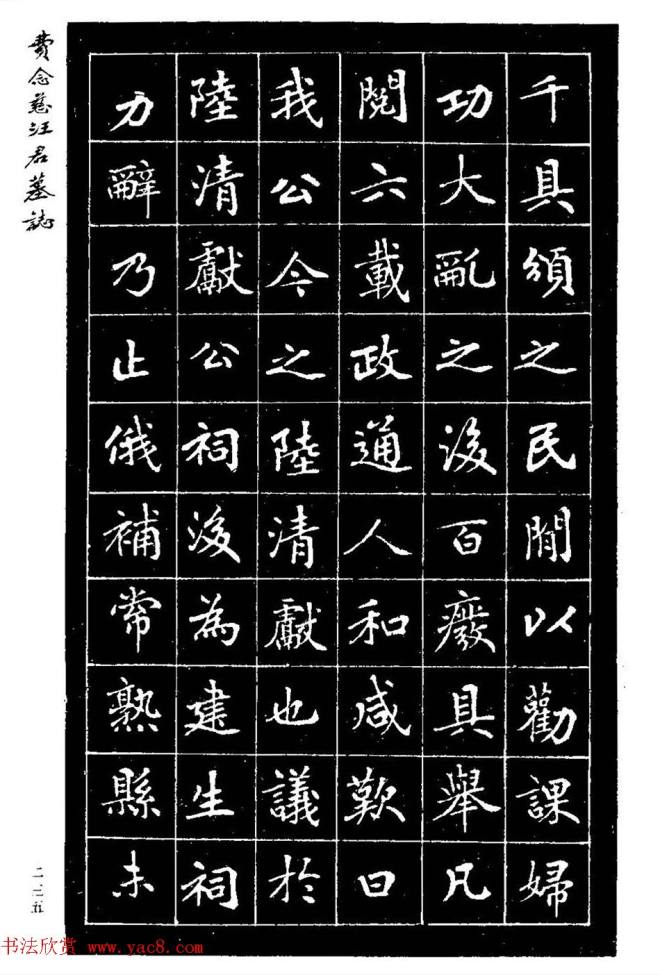 千具頒之民間以勸課婦
功大亂之後百廢具舉凡
閱六載政通人和咸歎曰
我公今之陸清獻也議於
陸清獻公祠後為建生祠
力辭乃止俄補常熟縣未
費念慈汪君墓誌
二二五
书法欣赏 www.yac8.com